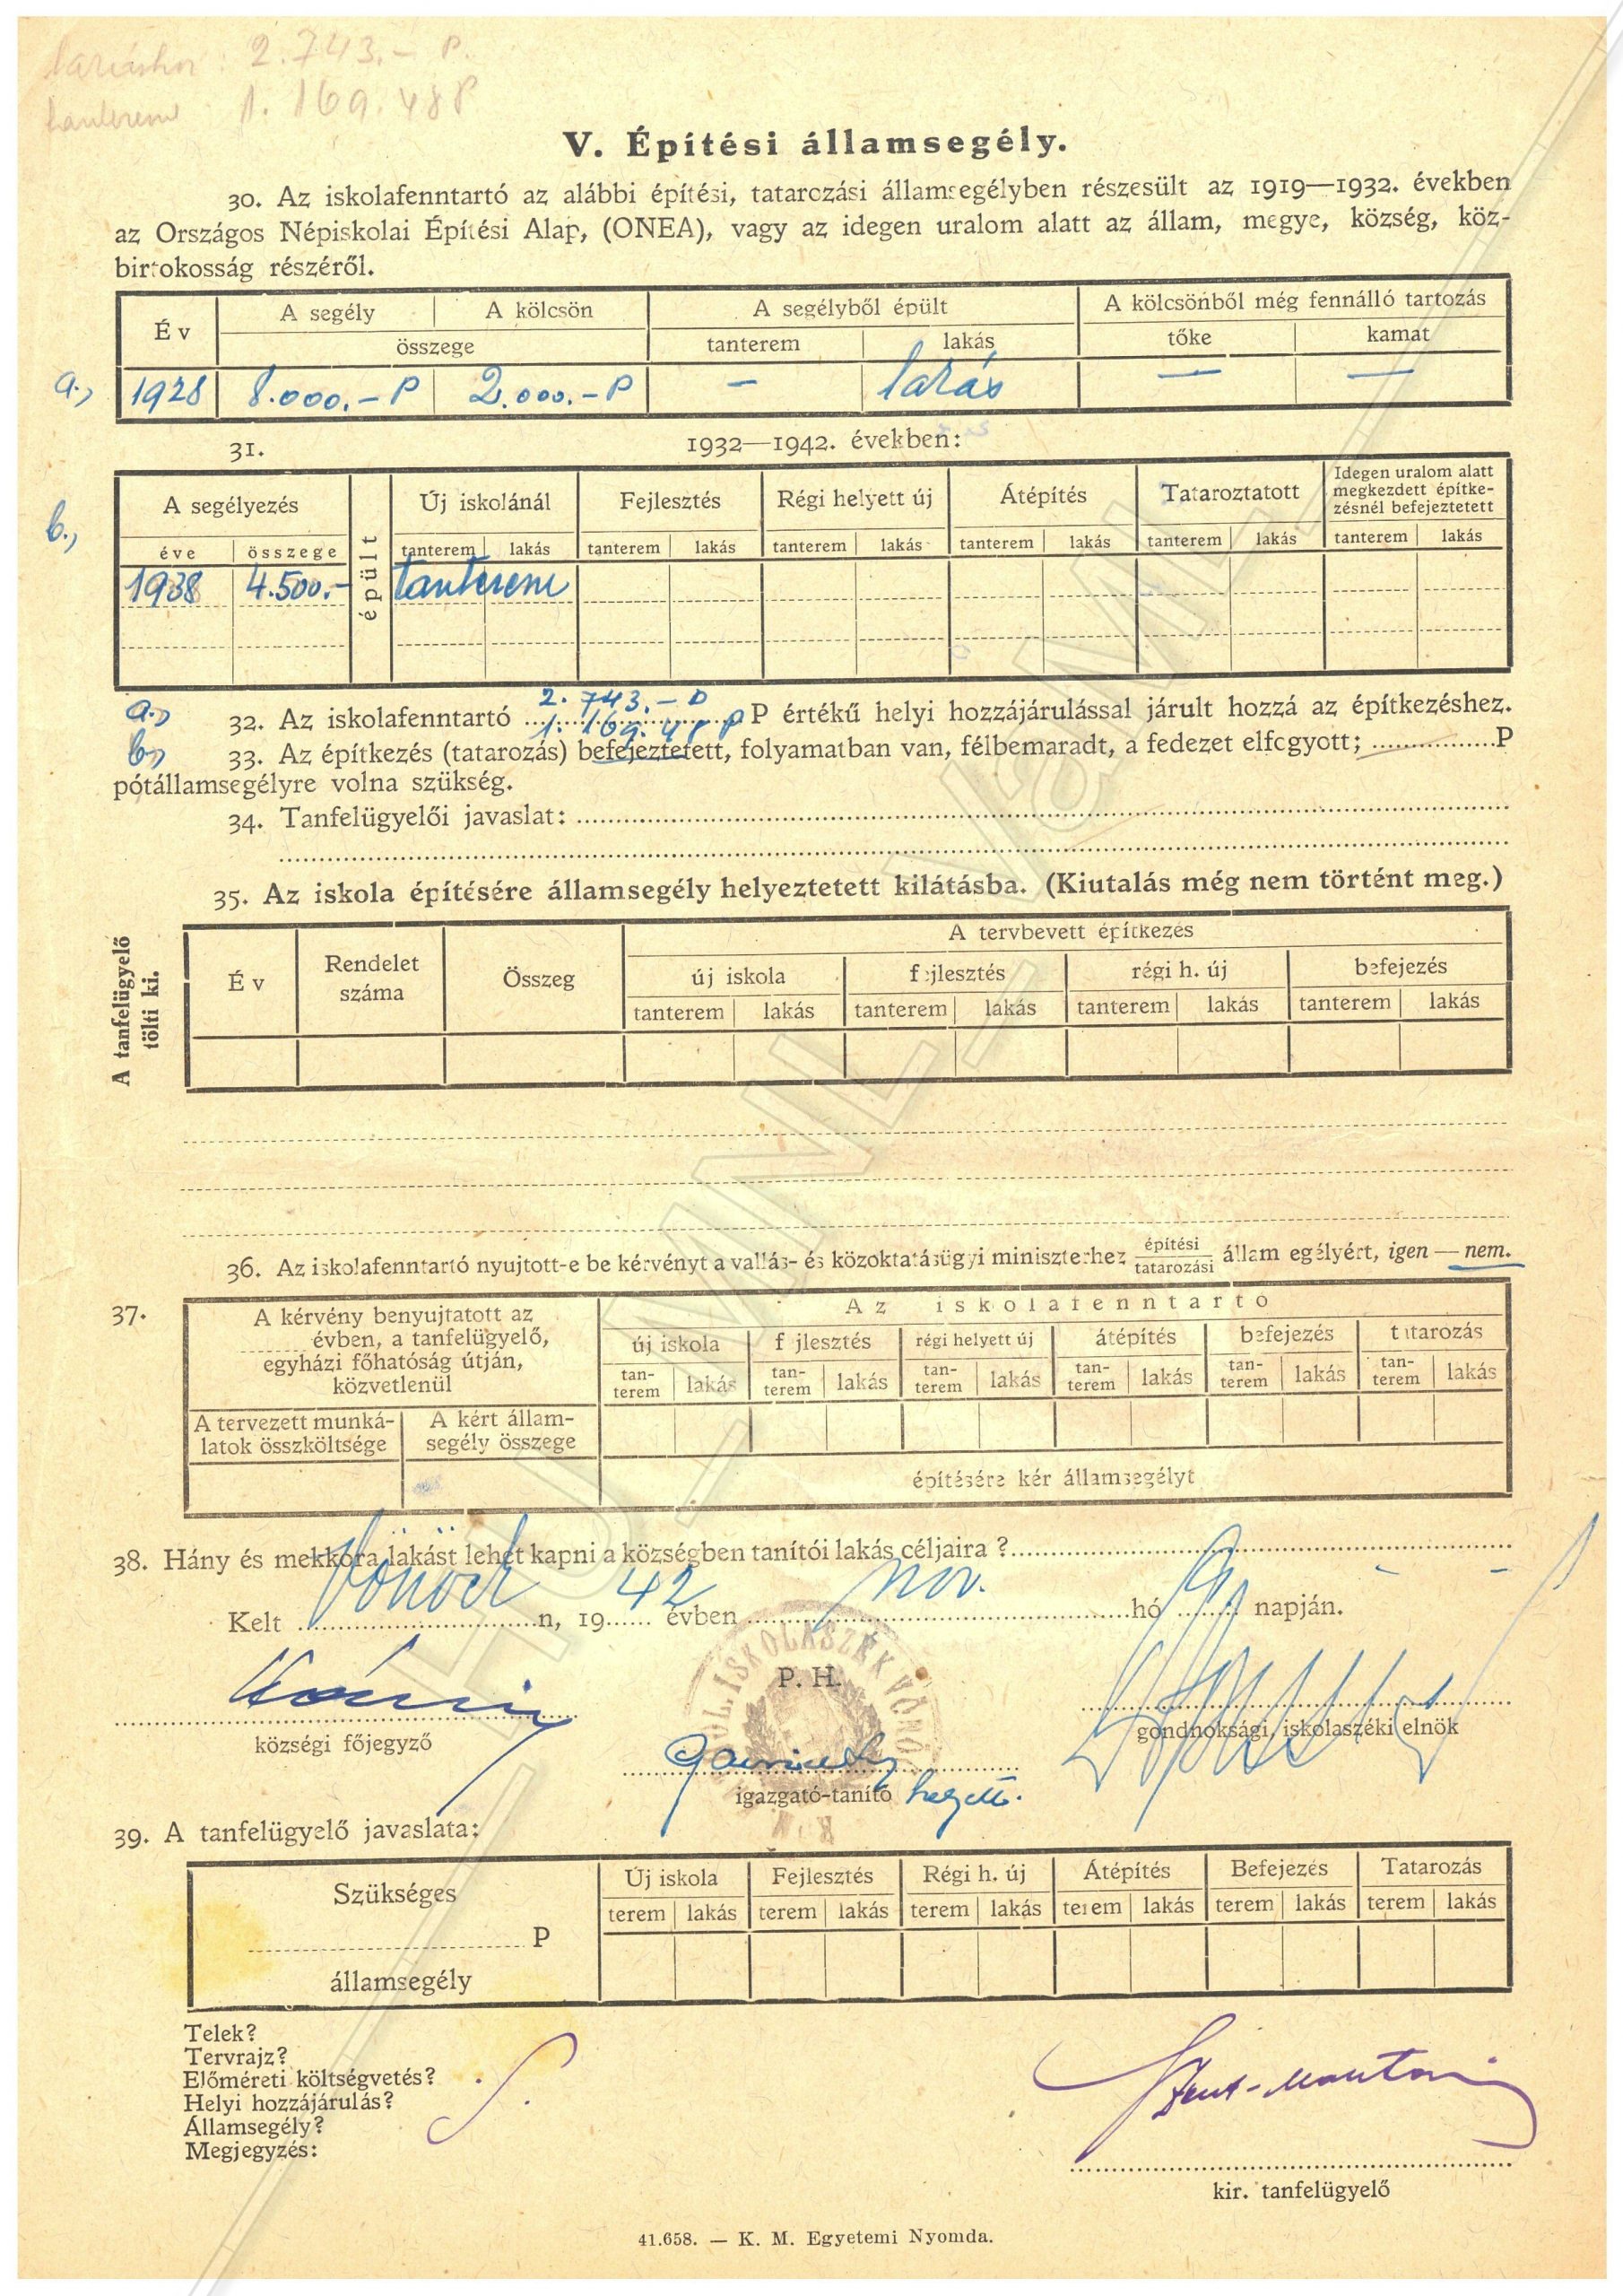 lakáshoz: 2.743.- P.
tanterem 1.169.48 P
V. Építési államsegély.
30. Az iskolafenntartó az alábbi építési, tatarczási államsegélyben részesült az 1919—1932. években
az Országos Népiskolai Építési Alap, (ONEA), vagy az idegen uralom alatt az állam, megye, község, köz-
birtokosság részéről.
Év | A segély | A kölcsön | A segélyből épült | A kölcsönből még fennálló tartozás
összege | tanterem | lakás | tőke | kamat
a., 1928 | 8.000.- P | 2.000.- P | - | lakás | — | —
31. 1932—1942. években:
b., A segélyezés | épült | Új iskolánál | Fejlesztés | Régi helyett új | Átépítés | Tataroztatott | Idegen uralom alatt megkezdett építke-zésnél befejeztetett
éve | összege | tanterem | lakás | tanterem | lakás | tanterem | lakás | tanterem | lakás | tanterem | lakás | tanterem | lakás
1938 | 4.500.- | tanterem
2.743.- P
a., 32. Az iskolafenntartó 1.169.48 P P értékű helyi hozzájárulással járult hozzá az építkezéshez.
b., 33. Az építkezés (tatarozás) befejeztetett, folyamatban van, félbemaradt, a fedezet elfogyott; ........ P
pótállamsegélyre volna szükség.
34. Tanfelügyelői javaslat:
35. Az iskola építésére államsegély helyeztetett kilátásba. (Kiutalás még nem történt meg.)
A tanfelügyelő tölti ki.
Év | Rendelet száma | Összeg | A tervbevett építkezés
új iskola | fejlesztés | régi h. új | befejezés
tanterem | lakás | tanterem | lakás | tanterem | lakás | tanterem | lakás
36. Az iskolafenntartó nyujtott-e be kérvényt a vallás- és közoktatásügyi miniszterhez építési tatarozási államsegélyért, igen — nem.
37. A kérvény benyujtatott az
........ évben, a tanfelügyelő,
egyházi főhatóság útján,
közvetlenül
Az iskolafenntartó
új iskola | fejlesztés | régi helyett új | átépítés | befejezés | tatarozás
tan-terem | lakás | tan-terem | lakás | tan-terem | lakás | tan-terem | lakás | tan-terem | lakás | tan-terem | lakás
A tervezett munká-latok összköltsége | A kért állam-segély összege
építésére kér államsegélyt
38. Hány és mekkora lakást lehet kapni a községben tanítói lakás céljaira ?
Kelt Vönöck n, 1942 évben nov. hó 9 napján.
P. H.
községi főjegyző
gondnoksági, iskolaszéki elnök
igazgató-tanító helyett.
39. A tanfelügyelő javaslata:
Szükséges
........ P
államsegély
Új iskola | Fejlesztés | Régi h. új | Átépítés | Befejezés | Tatarozás
terem | lakás | terem | lakás | terem | lakás | terem | lakás | terem | lakás | terem | lakás
Telek?
Tervrajz?
Előméreti költségvetés?
Helyi hozzájárulás?
Államsegély?
Megjegyzés:
kir. tanfelügyelő
41.658. — K. M. Egyetemi Nyomda.